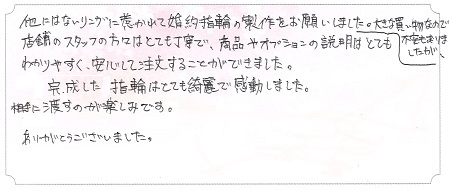 他にはないリングに惹かれて婚約指輪の製作をお願いしました。大きな買い物なので
不安もありましたが、
店舗のスタッフの方々はとても丁寧で、商品やオプションの説明はとても
わかりやすく、安心して注文することができました。
完成した指輪はとても綺麗で感動しました。
相手に渡すのが楽しみです。
ありがとうございました。